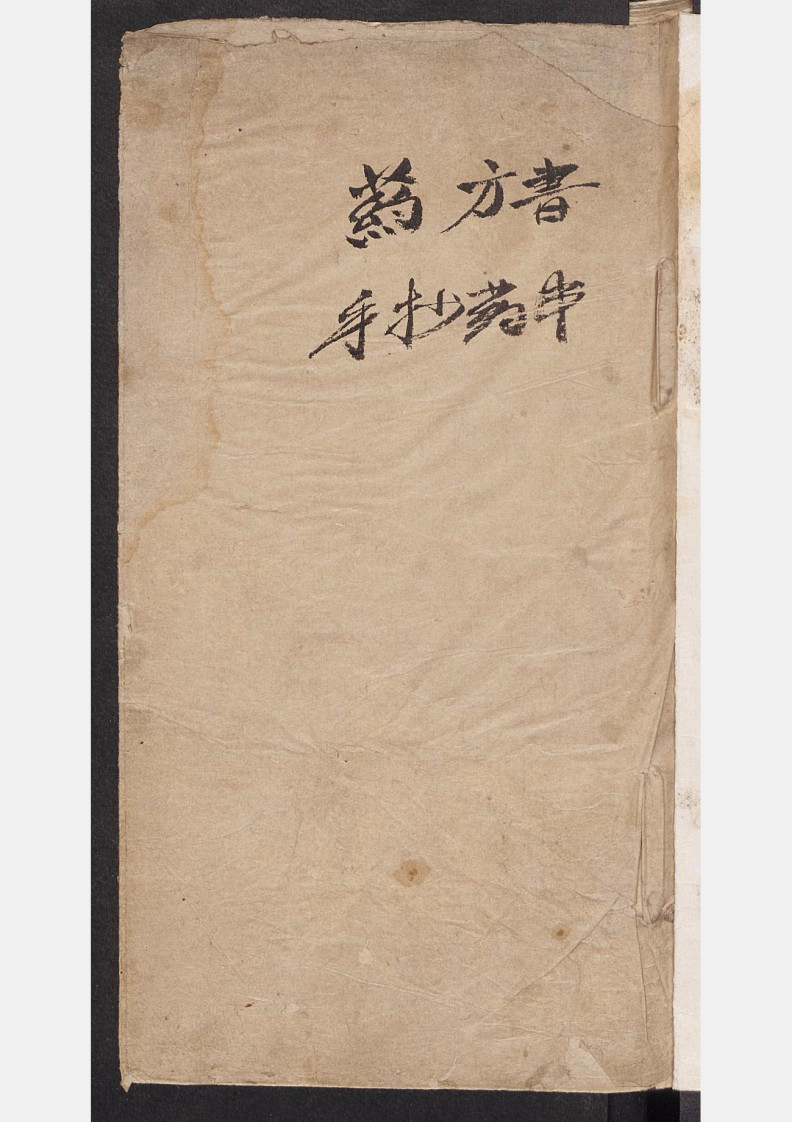 葯方書
手抄葯